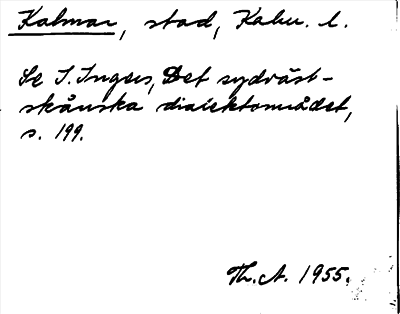 Kalmar, stad, Kalm. l.
Se S. Ingers, Det sydväst-
skånska dialektområdet,
s. 199.
Th. A. 1955.